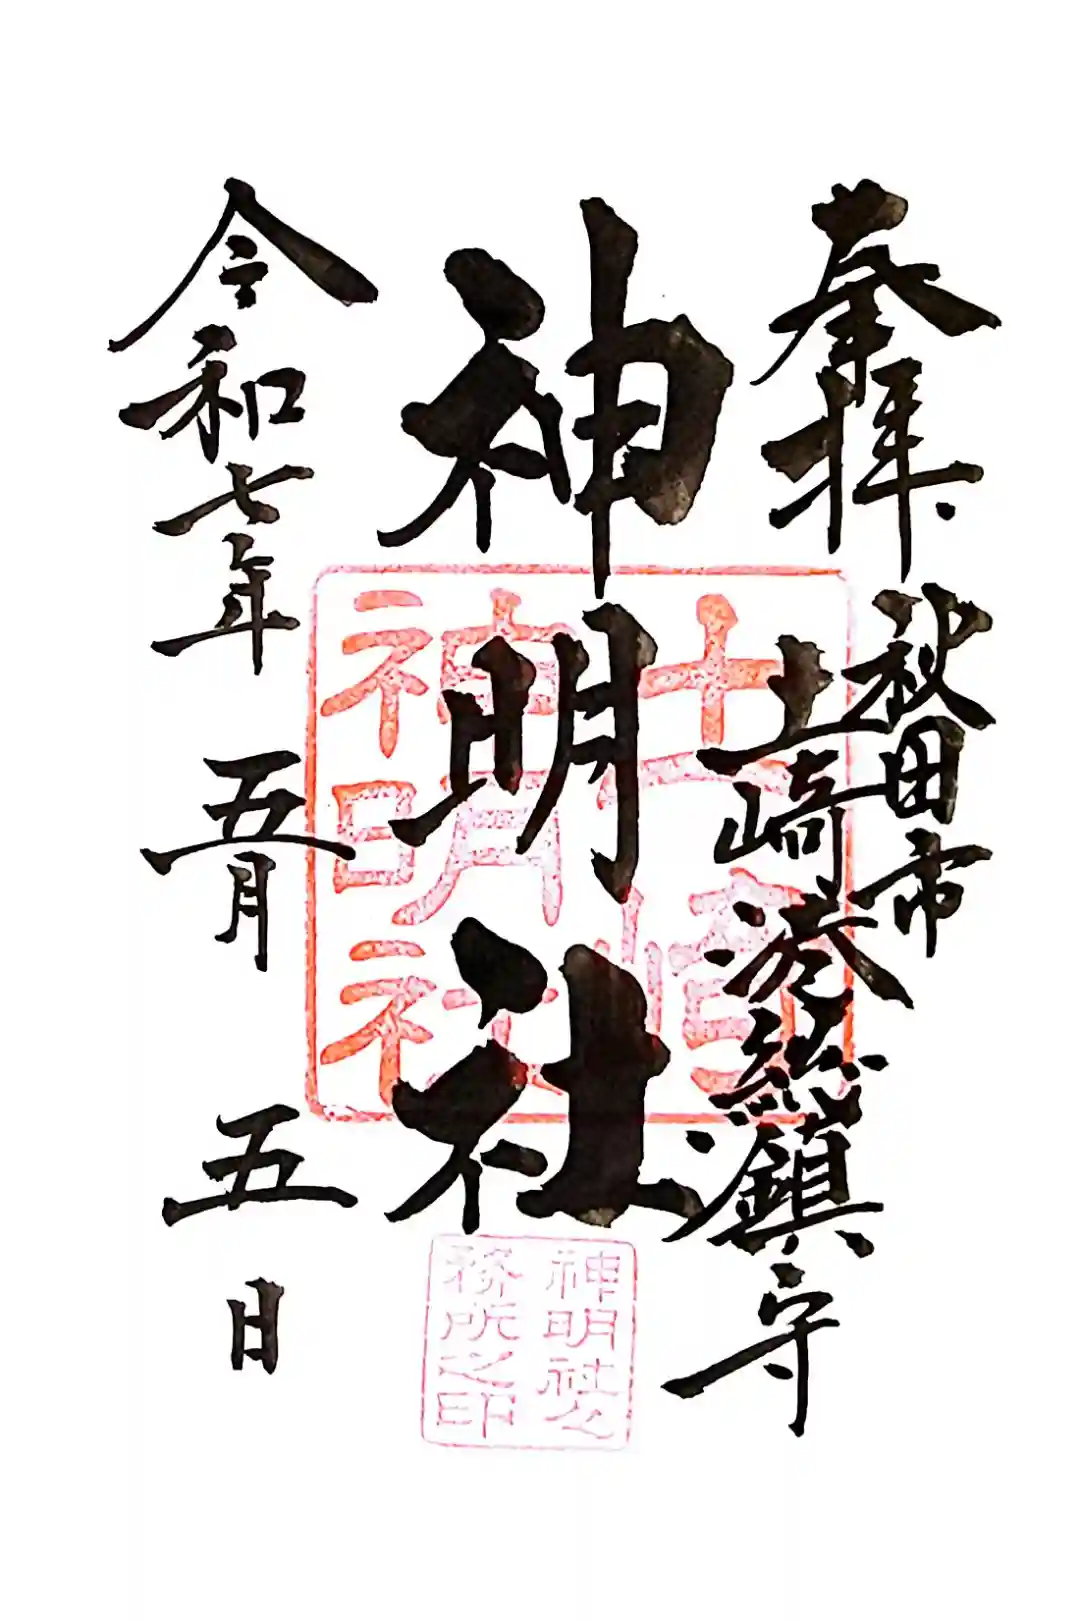 奉拝
秋田市
土崎港総鎮守
神明社
令和七年 五月 五日
土崎
神明社
神明社公
務所之印